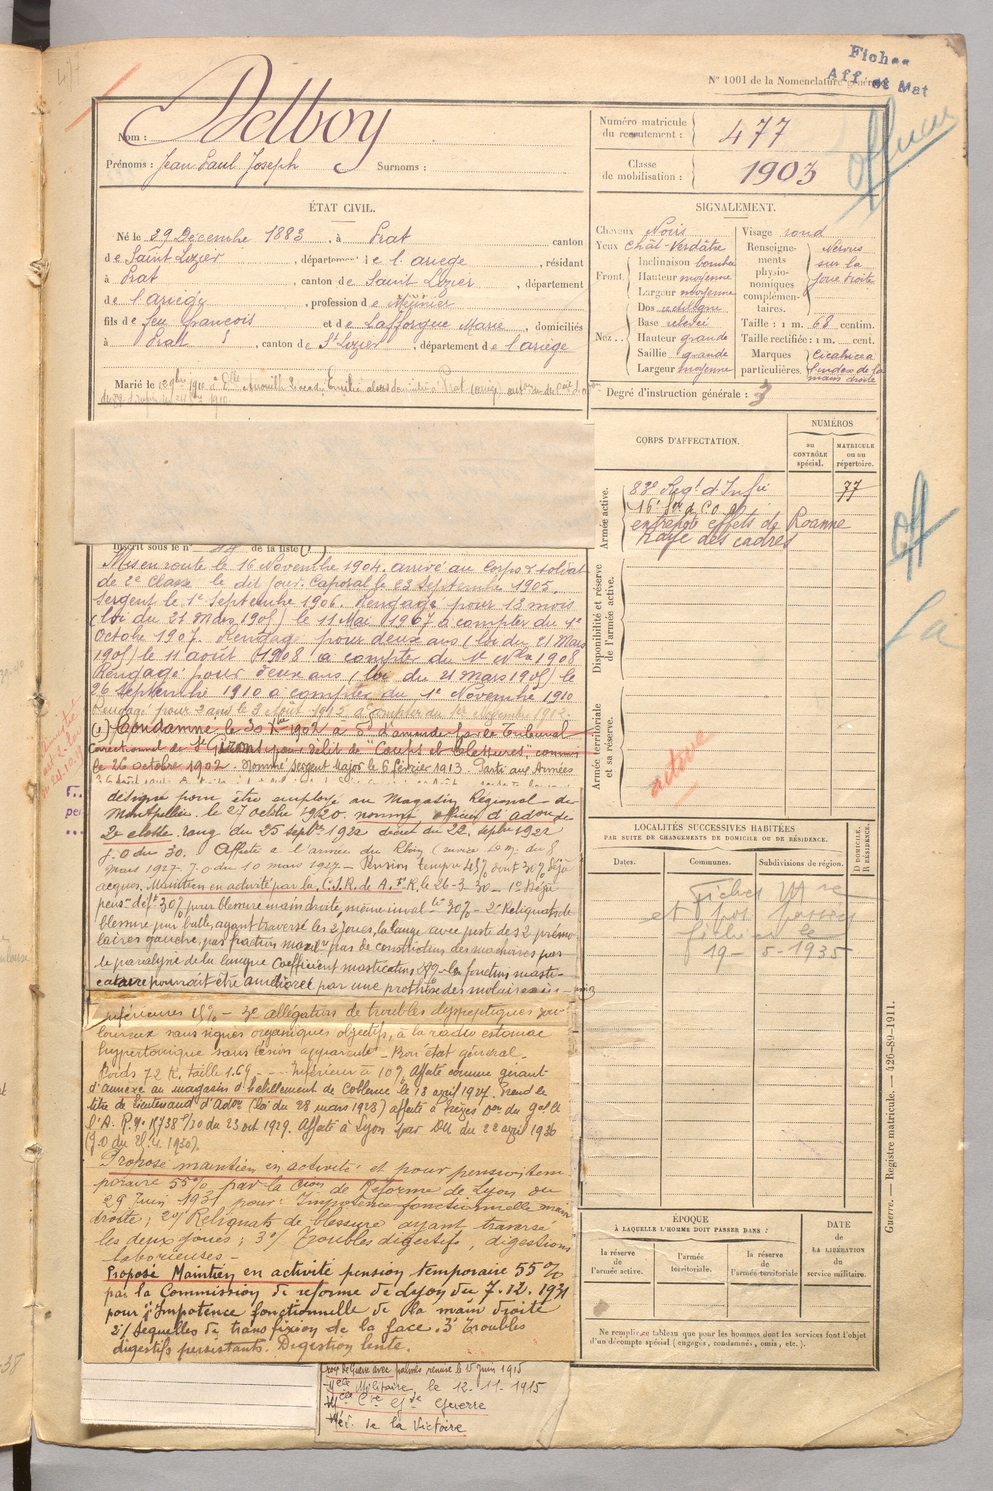 Fiches
Aff et Mat
N° 1001 de la Nomenclature générale
officier
477
Nom : Delboy
Prénoms : Jean Paul Joseph Surnoms :
Numéro matricule du recrutement : 477
Classe de mobilisation : 1903
ÉTAT CIVIL.
Né le 29 Décembre 1883, à Prat canton
de Saint Lizier, département de l'ariège, résidant
à Prat, canton de Saint Lizier, département
de l'ariège, profession de Meunier
fils de feu francois et de Lafforgue Marie, domiciliés
à Prat, canton de St Lizier, département de l'ariège
Marié le
SIGNALEMENT.
Cheveux Noirs
Yeux chât-verdâtre
Front. Inclinaison bombée
Hauteur moyenne
Largeur moyenne
Nez. Dos rectiligne
Base relevée
Hauteur grande
Saillie grande
Largeur moyenne
Visage rond
Renseignements physionomiques complémentaires. Noevus sur la joue droite
Taille : 1 m. 68 centim.
Taille rectifiée : 1 m. cent.
Marques particulières. Cicatrice l'index de la main droite
Degré d'instruction générale : 3
CORPS D'AFFECTATION.
NUMÉROS
au CONTRÔLE spécial.
MATRICULE ou au répertoire.
Armée active.
83e Regt d'Infie 77
16e Son d. C.O.
entrepôt effets de Roanne
Rayé des cadres
off
La
Disponibilité et réserve de l'armée active.
Armée territoriale et sa réserve.
active
Inscrit sous le n° 44 de la liste (1)
Mis en route le 16 Novembre 1904. arrivé au Corps & soldat
de 2e Classe le dit jour. Caporal le 23 Septembre 1905.
Sergent le 1er Septembre 1906. Rengagé pour 18 mois
(loi du 21 Mars 1905) le 11 Mai 1907 à compter du 1er
Octobre 1907. Rengagé pour deux ans (loi du 21 Mars
1905) le 11 août 1908 à compter du 1er Nbre 1908
Rengagé pour deux ans (loi du 21 Mars 1905) le
26 Septembre 1910 à compter du 1er Novembre 1910
Rengagé pour 2 ans le 2 Août 1912 à compter du 1er Novembre 1912.
(1) Condamné le 30 Xbre 1902 à 5f d'amende par le Tribunal
correctionnel de St Girons pour délit de "Coups et blessures", commis
le 26 octobre 1902 - Nommé Sergent Major le 6 février 1913. Parti aux Armées
désigné pour être employé au Magasin Régional de
Montpellier le 27 octobre 1920. nommé officier d'adon de
2e classe. rang du 25 septbre 1922 décret du 22 septbre 1922
J.O du 30. Affecté à l'armée du Rhin
mars 1927. J.O du 10 mars 1927 - Pension tempre 45% dont 30% déjà
acquis. Maintien en activité par la C.S.R. de A.F.R. le 26-3-30
pens. déf. 30% pour blessure main droite, même inval. té 30% - 2e Reliquats de
blessure par balle, ayant traversé les 2 joues, la langue avec perte des 2 prémo-
laires gauche, pas de constriction des machoires pas
de paralysie de la langue Coefficient masticateur la fonction masti-
catoire pourrait être améliorée par une prothèse des molaires
inférieures 15% - 3e allégation de troubles dyspeptiques dou-
loureux sans signes organiques objectifs, à la radio estomac
hypertonique sans lésion apparente - Bon état général.
Poids 72 K, taille 1.69 - Inférieur à 10%. Affecté comme gérant
d'annexe au magasin d'habillement de Coblence le 18 avril 1927. Prend le
titre de Lieutenant d'Adon (loi du 28 mars 1928) affecté à Trèves
l'A. R. n° 11738 1/10 du 23 oct 1929. Affecté à Lyon par DM du 22 avril 1930
(J.O du 25.4.1930).
Proposé maintien en activité et pour pension tem-
poraire 55% par la Cion de Réforme de Lyon du
29 Juin 1931 pour: Impotence fonctionnelle main
droite; 2°/ Reliquats de blessure ayant traversé
les deux joues; 3°/ Troubles digestifs, digestions
laborieuses -
Proposé Maintien en activité pension temporaire 55%
par la Commission de réforme de Lyon du 7.12.1931
pour 1° Impotence fonctionnelle de la main droite
2°/ Sequelles de transfixion de la face. 3° Troubles
digestifs persistants. Digestion lente.
Croix de Guerre avec palmes remise le 15 juin 1915
Mlle Militaire le 12-11-1915
Mlle Cve Gde Guerre
Méd. de la Victoire
LOCALITÉS SUCCESSIVES HABITÉES
PAR SUITE DE CHANGEMENTS DE DOMICILE OU DE RÉSIDENCE.
Dates. Communes. Subdivisions de région.
D DOMICILE. R RÉSIDENCE.
Fiches Mre
19 - 5-1935
ÉPOQUE
À LAQUELLE L'HOMME DOIT PASSER DANS :
la réserve de l'armée active.
l'armée territoriale.
la réserve de l'armée territoriale
DATE de LA LIBÉRATION du service militaire.
Ne remplir ce tableau que pour les hommes dont les services font l'objet
d'un décompte spécial (engagés, condamnés, omis, etc.).
Guerre. — Registre matricule. — 426-89-1911.